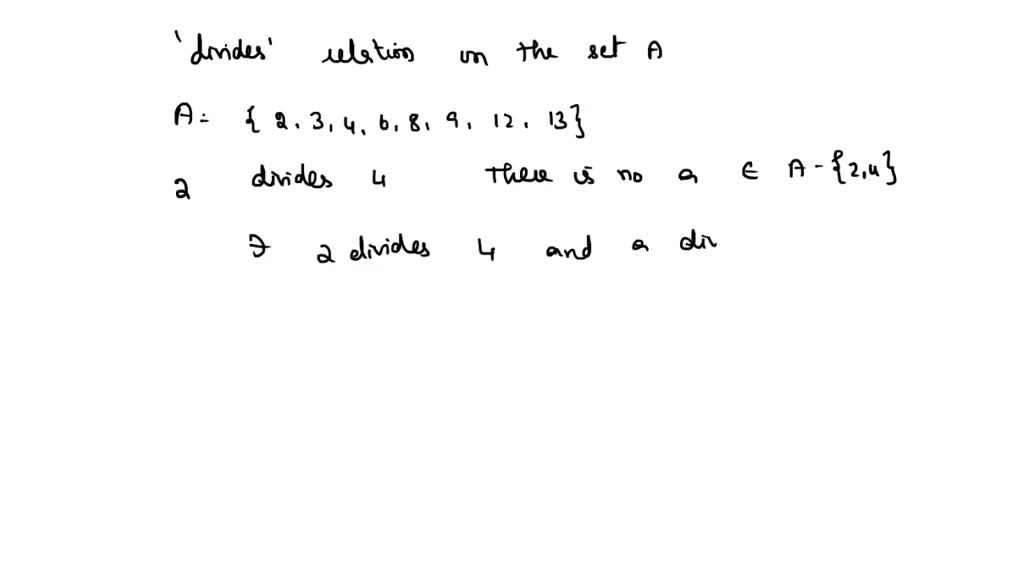 'divides' relation on the set A
A = { 2, 3, 4, 6, 8, 9, 12, 13}
2 divides 4 There is no a ∈ A - {2,4}
∋ 2 divides 4 and a div